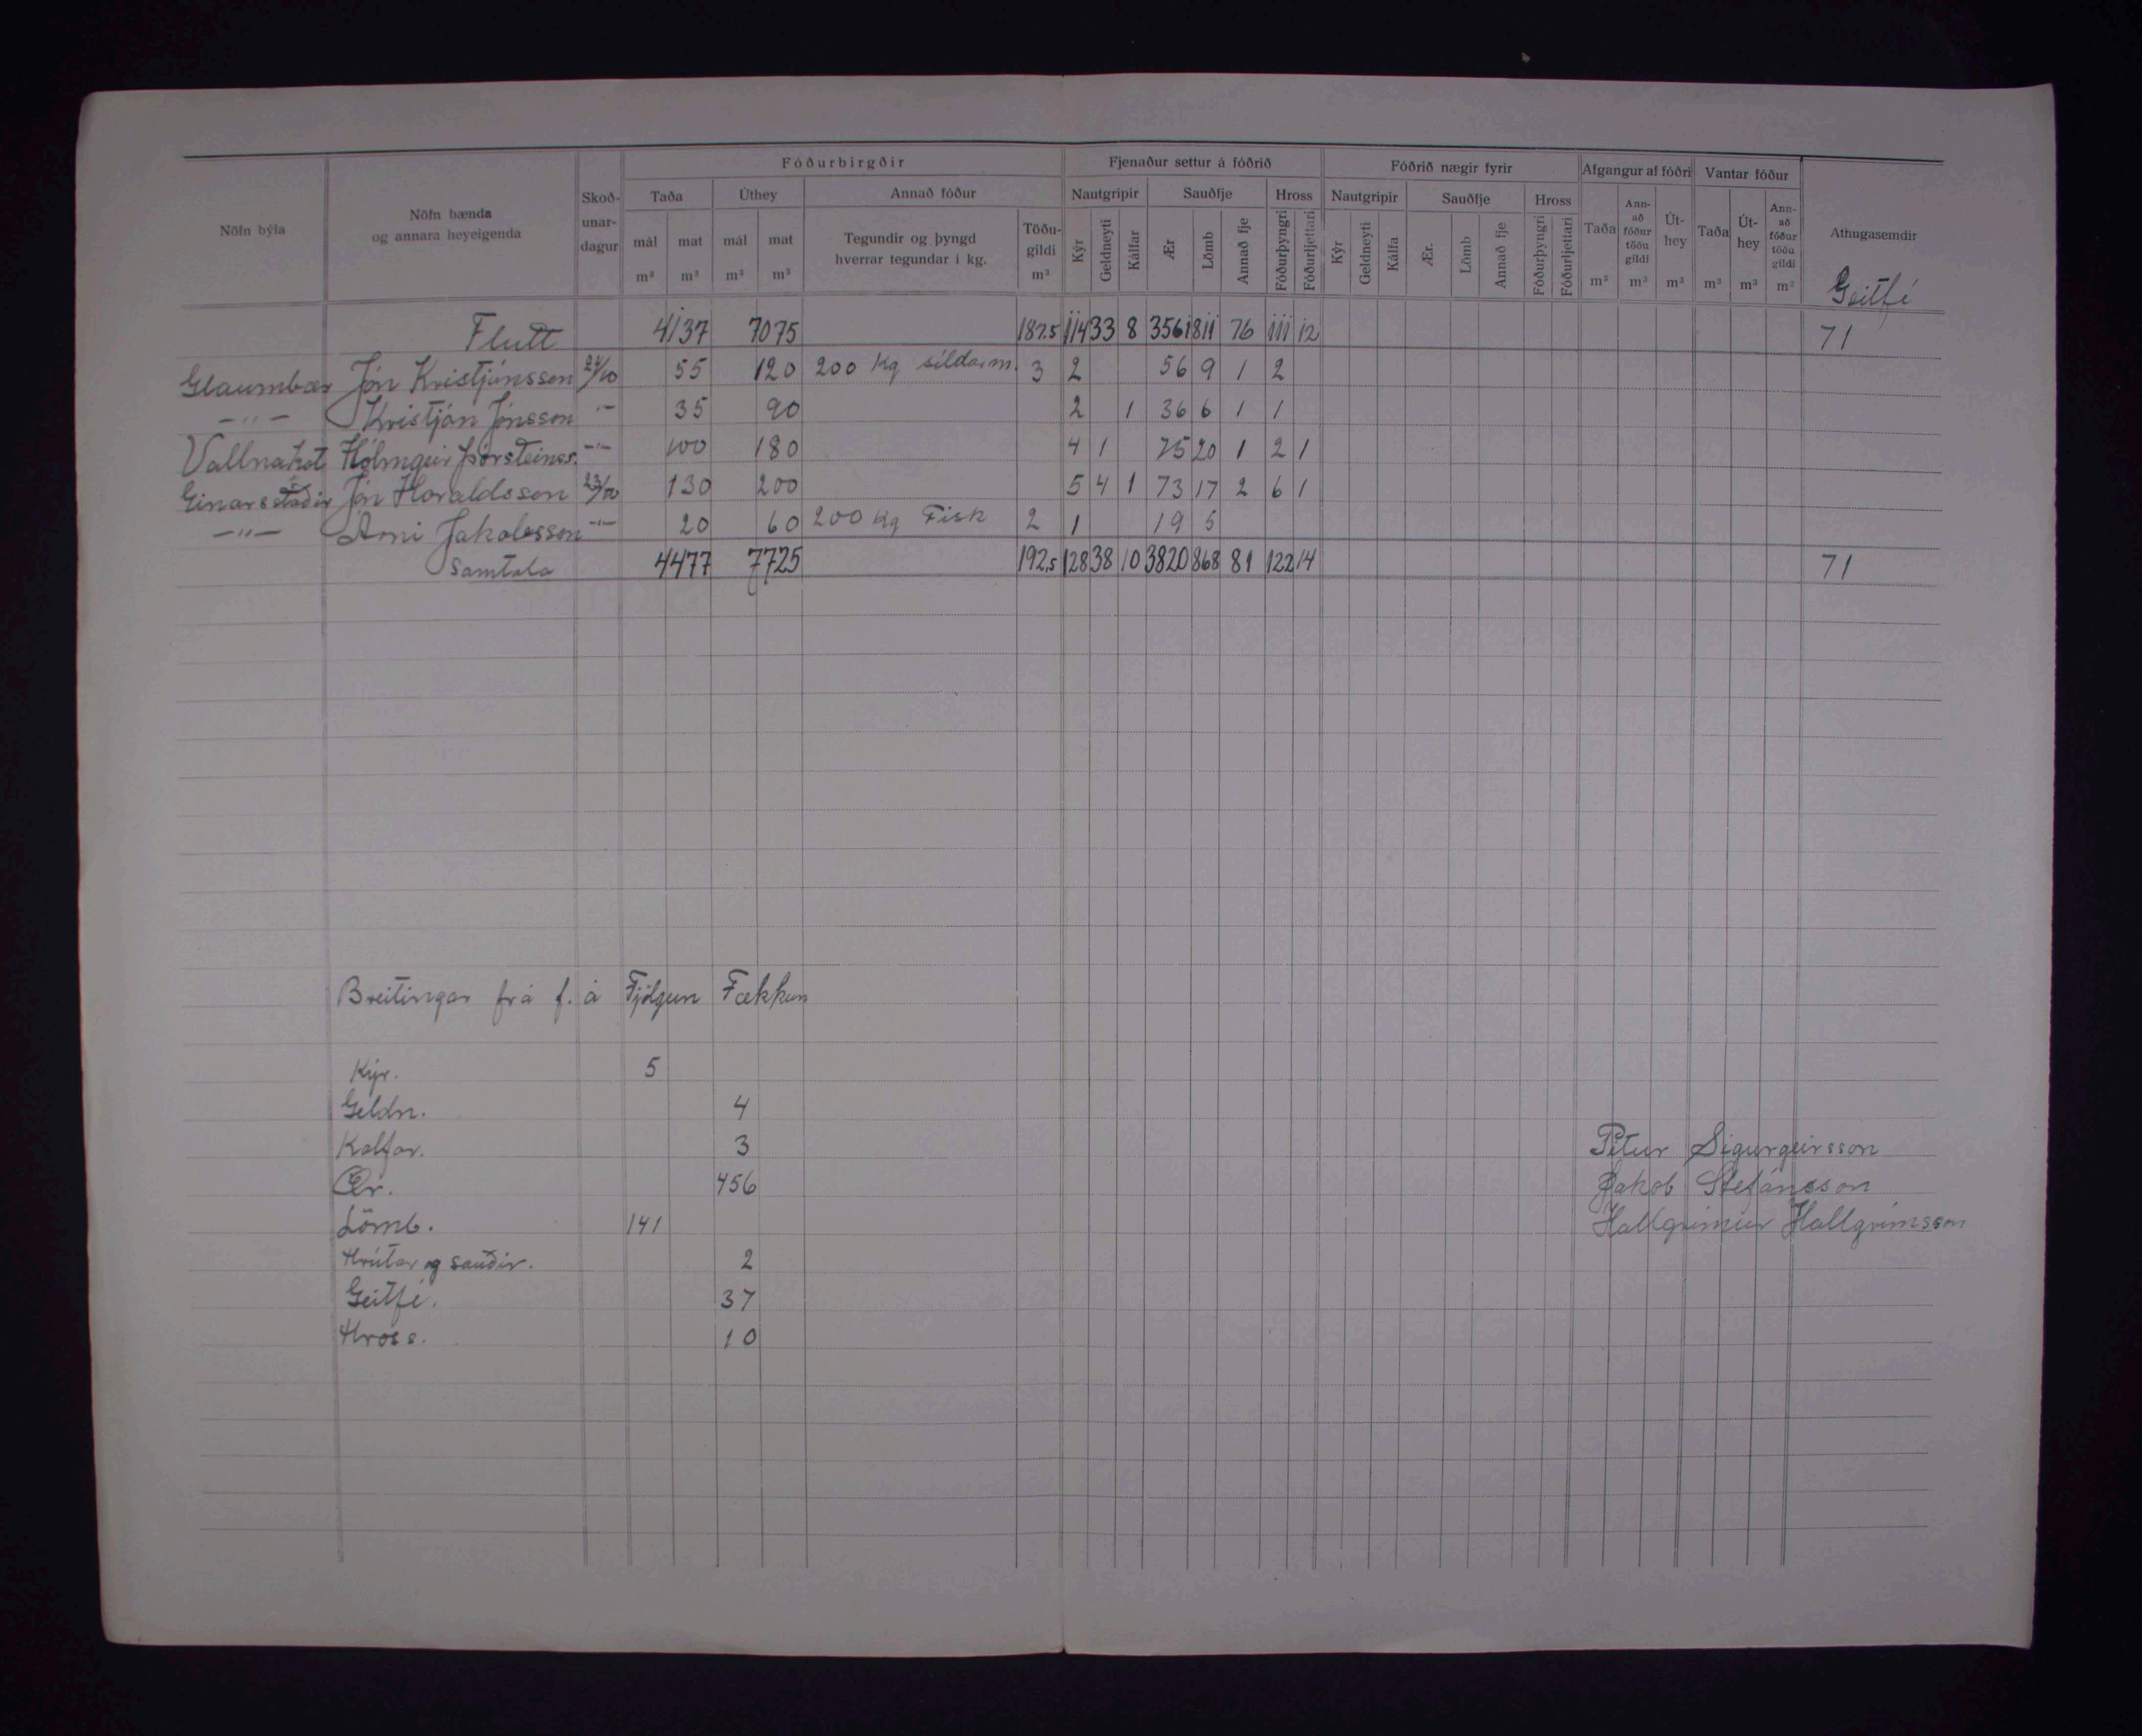 Nöfn býla | Nöfn bænda og annara heyeigenda | Skoð-unar-dagur | Fóðurbirgðir | Fjenaður settur á fóðrið | Fóðrið nægir fyrir | Afgangur af fóðri | Vantar fóður | Athugasemdir
Taða | Úthey | Annað fóður | Nautgripir | Sauðfje | Hross | Nautgripir | Sauðfje | Hross
mál m³ | mat m³ | mál m³ | mat m³ | Tegundir og þyngd hverrar tegundar í kg. | Töðu-gildi m³ | Kýr | Geldneyti | Kálfar | Ær | Lömb | Annað fje | Fóðurþyngri | Fóðurljettari | Kýr | Geldneyti | Kálfa | Ær. | Lömb | Annað fje | Fóðurþyngri | Fóðurljettari | Taða m³ | Ann-að fóður töðu gildi m³ | Út-hey m³ | Taða m³ | Út-hey m³ | Ann-að fóður töðu gildi m³ | Geitfé
Flutt 4137 7075 187.5 114 33 8 3561 811 76 111 12 71
Glaumbær Jón Kristjánsson 24/10 55 120 200 Kg síldarm. 3 2 56 9 1 2
-"- Kristján Jónsson -"- 35 90 2 1 36 6 1 1
Vallnakot Hólmgeir Þorsteinss. -"- 100 180 4 1 75 20 1 2 1
Einarsstaðir Jón Haraldsson 23/10 130 200 5 4 1 73 17 2 6 1
-"- Árni Jakobsson -"- 20 60 200 Kg Fisk 2 1 19 5
Samtals 4477 7725 192,5 128 38 10 3820 868 81 122 14 71
Breitingar frá f. á Fjölgun Fækkun
Kýr. 5
Geldn. 4
Kalfar. 3
Ær. 456
Lömb. 141
Hrútar og sauðir. 2
Geitfé. 37
Hross. 10
Pétur Sigurgeirsson
Jakob Stefánsson
Hallgrímur Hallgrímsson